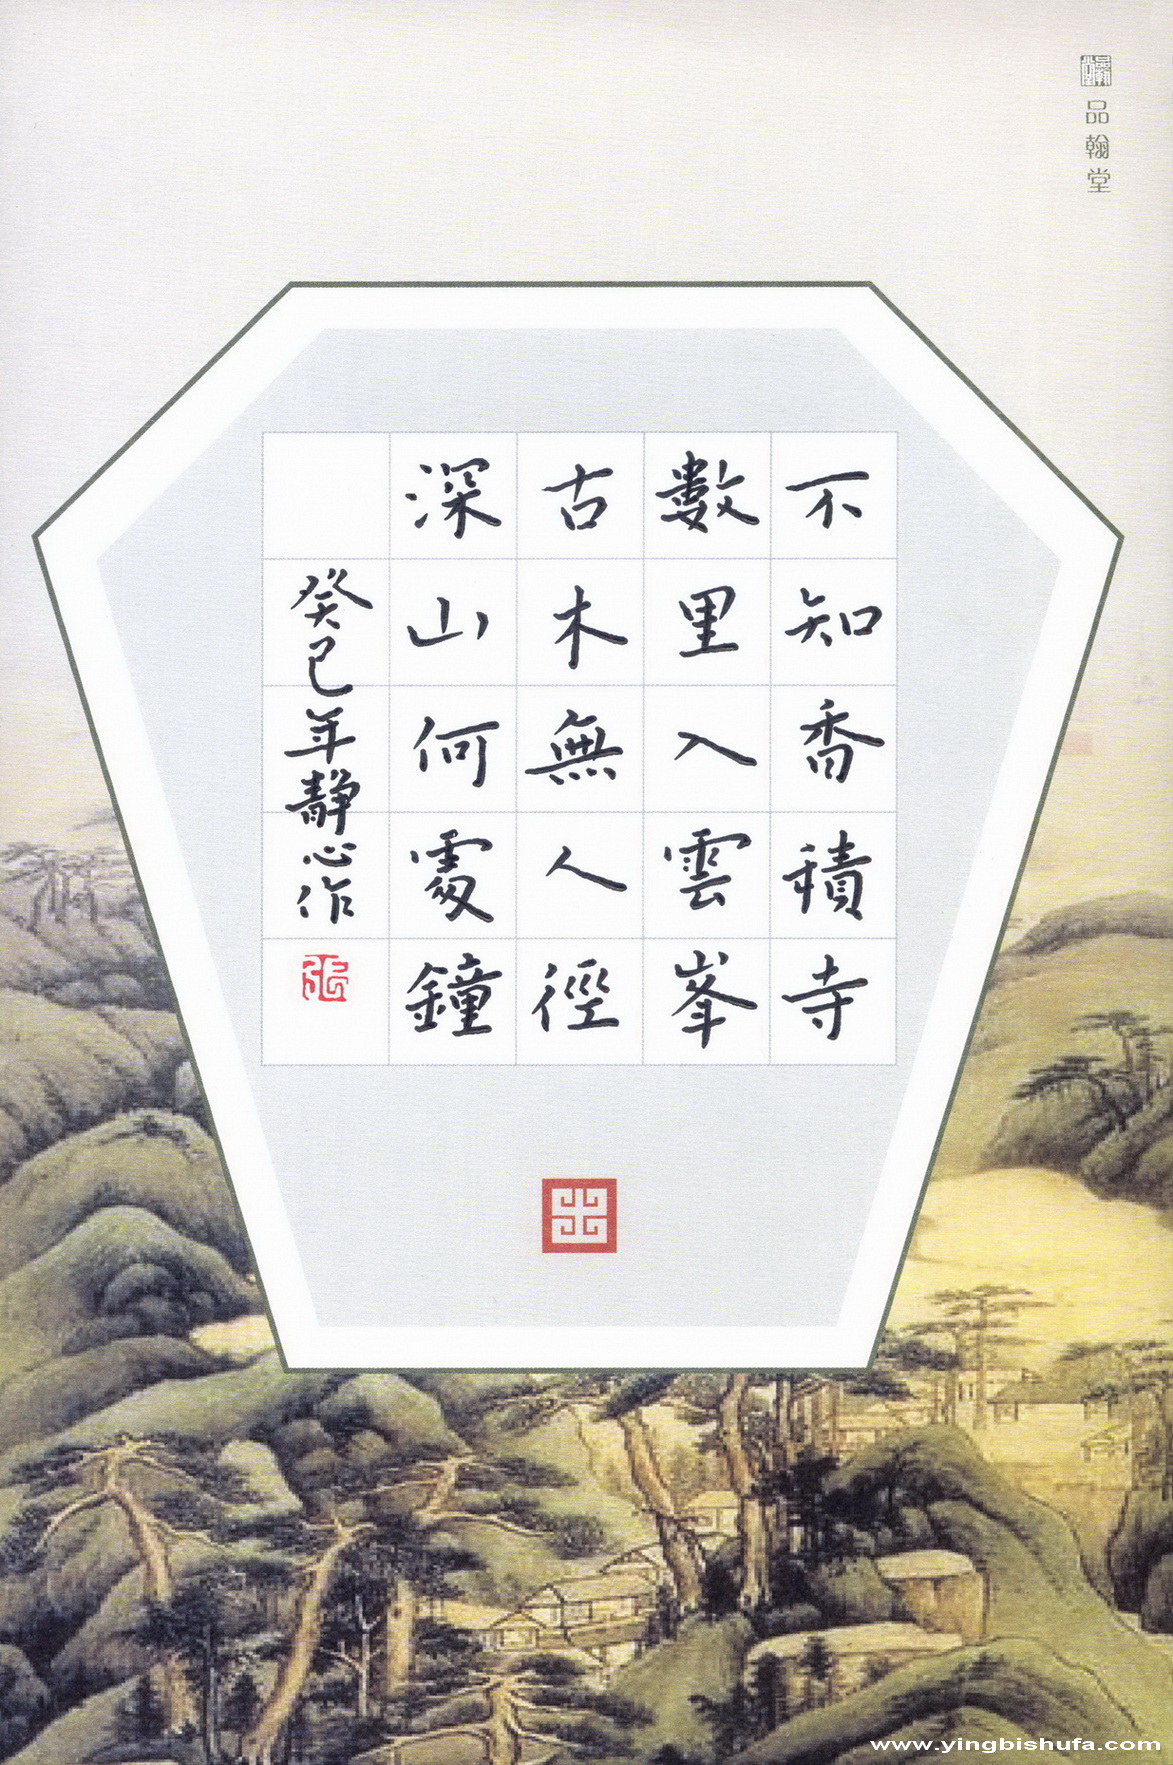 品翰堂
不知香積寺
數里入雲峯
古木無人徑
深山何處鐘
癸巳年靜心作
www.yingbishufa.com